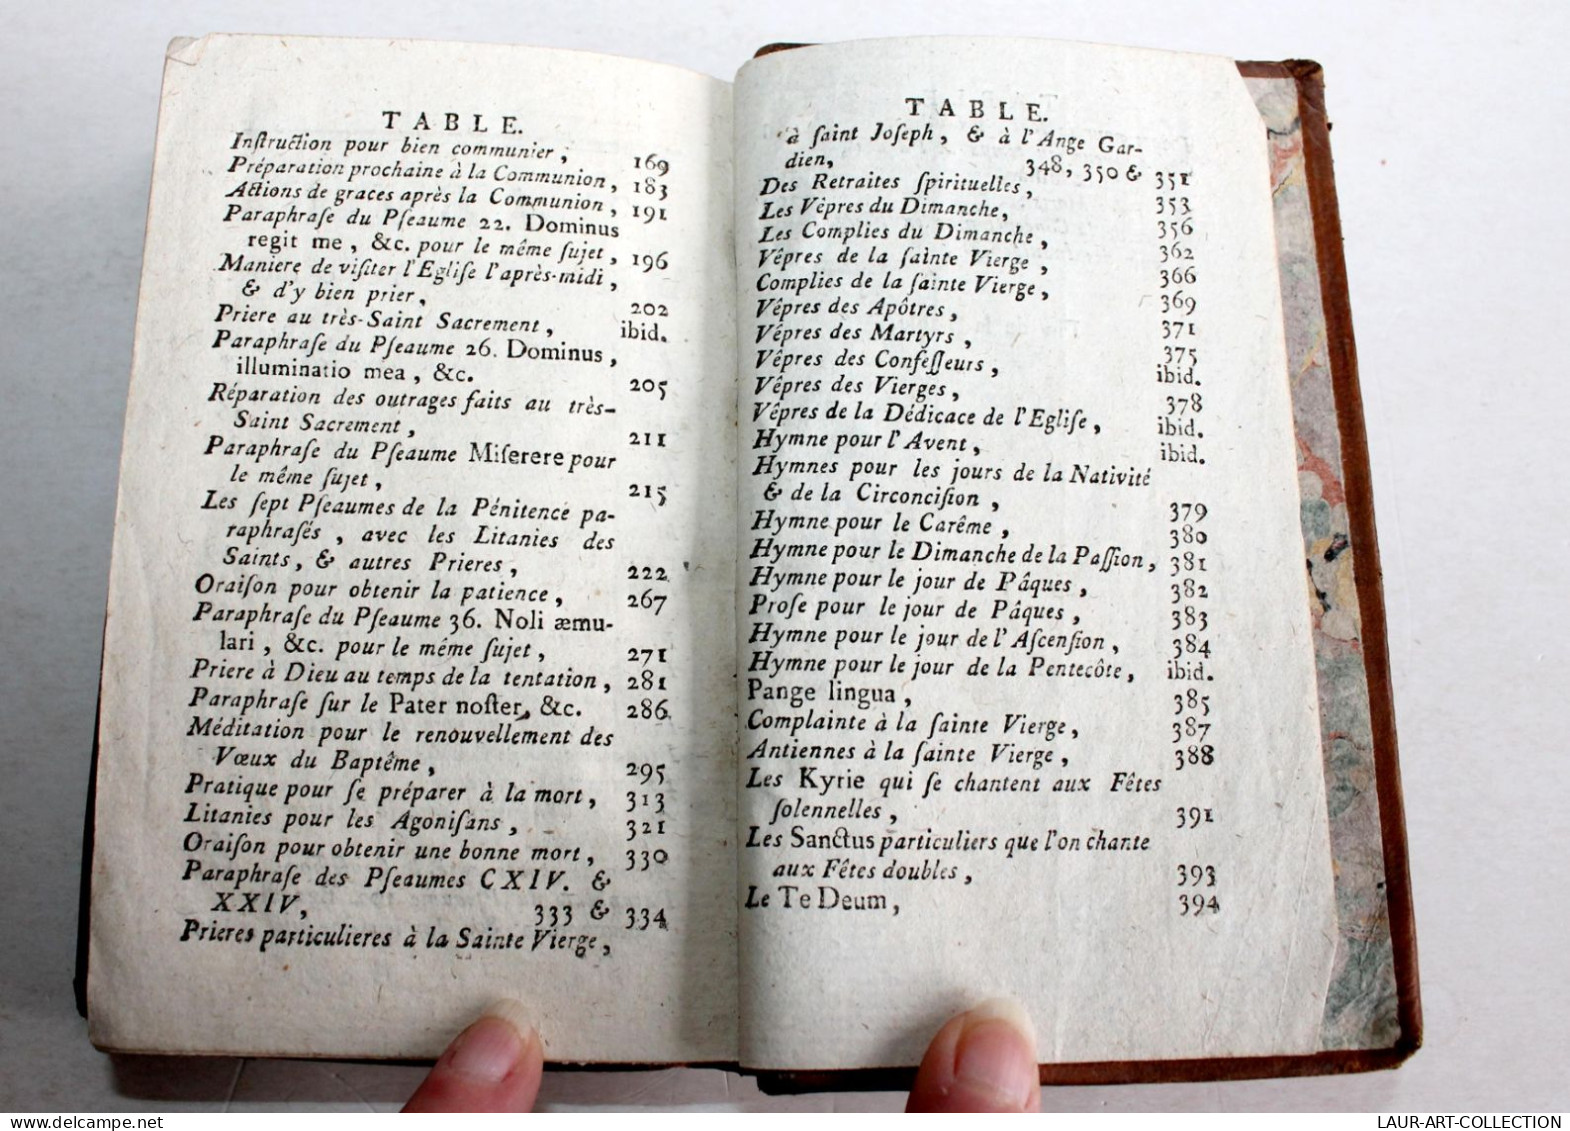 TABLE.
Inſtruction pour bien communier, 169
Préparation prochaine à la Communion, 183
Actions de graces après la Communion, 191
Paraphraſe du Pſeaume 22. Dominus
regit me, &c. pour le même ſujet, 196
Maniere de viſiter l'Egliſe l'après-midi,
& d'y bien prier, 202
Priere au très-Saint Sacrement, ibid.
Paraphraſe du Pſeaume 26. Dominus,
illuminatio mea, &c. 205
Réparation des outrages faits au très-
Saint Sacrement, 211
Paraphraſe du Pſeaume Miſerere pour
le même ſujet, 215
Les ſept Pſeaumes de la Pénitence pa-
raphraſés, avec les Litanies des
Saints, & autres Prieres, 222
Oraiſon pour obtenir la patience, 267
Paraphraſe du Pſeaume 36. Noli æmu-
lari, &c. pour le même ſujet, 271
Priere à Dieu au temps de la tentation, 281
Paraphraſe ſur le Pater noſter, &c. 286
Méditation pour le renouvellement des
Vœux du Baptême, 295
Pratique pour ſe préparer à la mort, 313
Litanies pour les Agoniſans, 321
Oraiſon pour obtenir une bonne mort, 330
Paraphraſe des Pſeaumes CXIV. &
XXIV, 333 & 334
Prieres particulieres à la Sainte Vierge,
TABLE.
à ſaint Joſeph, & à l'Ange Gar-
dien, 348, 350 & 351
Des Retraites ſpirituelles, 353
Les Vêpres du Dimanche, 356
Les Complies du Dimanche, 362
Vêpres de la ſainte Vierge, 366
Complies de la ſainte Vierge, 369
Vêpres des Apôtres, 371
Vêpres des Martyrs, 375
Vêpres des Confeſſeurs, ibid.
Vêpres des Vierges, 378
Vêpres de la Dédicace de l'Egliſe, ibid.
Hymne pour l'Avent, ibid.
Hymnes pour les jours de la Nativité
& de la Circonciſion, 379
Hymne pour le Carême, 380
Hymne pour le Dimanche de la Paſſion, 381
Hymne pour le jour de Pâques, 382
Proſe pour le jour de Pâques, 383
Hymne pour le jour de l'Aſcenſion, 384
Hymne pour le jour de la Pentecôte, ibid.
Pange lingua, 385
Complainte à la ſainte Vierge, 387
Antiennes à la ſainte Vierge, 388
Les Kyrie qui ſe chantent aux Fêtes
ſolennelles, 391
Les Sanctus particuliers que l'on chante
aux Fêtes doubles, 393
Le Te Deum, 394
www.delcampe.net
LAUR-ART-COLLECTION